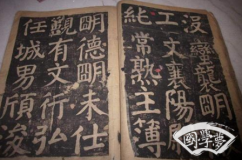 明
工文襄陽
純常熟主簿
明德明未仕
觀有文行弘
任城男頎
國學夢